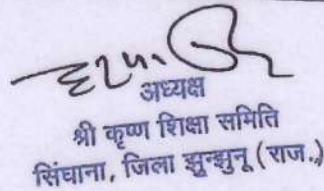 अध्यक्ष
श्री कृष्ण शिक्षा समिति
सिंघाना, जिला झुन्झुनू (राज.)